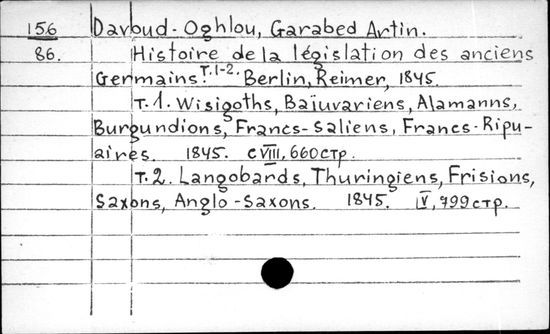 156 Davoud-Oghlou, Garabed Artin.
86. Histoire de la législation des anciens
Germains. т.1-2. Berlin, Reimer, 1845.
т.1. Wisigoths, Baïuvariens, Alamanns,
Burgundions, Francs-Saliens, Francs-Ripu-
aires. 1845. CVIII, 660 стр.
т.2. Langobards, Thuringiens, Frisions,
Saxons, Anglo-Saxons. 1845. IV, 799 стр.